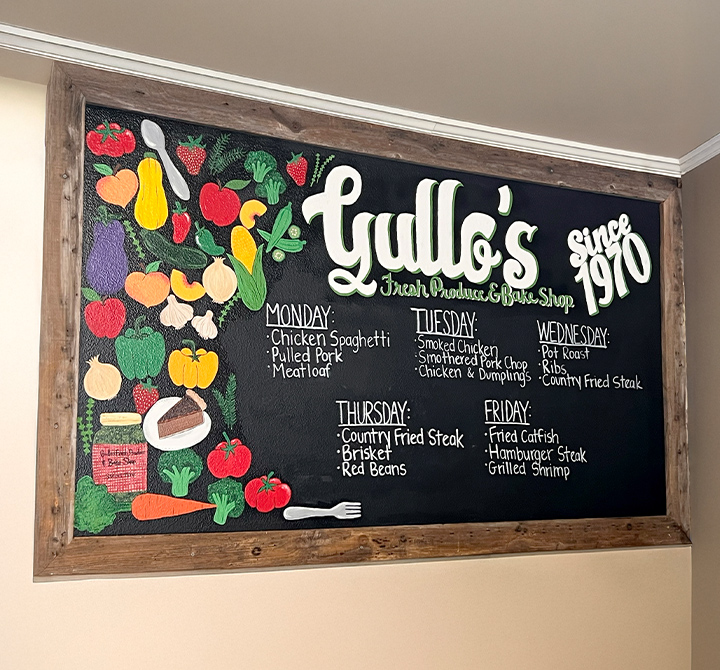 Gullo's
Fresh Produce & Bake Shop
Since
1970
MONDAY:
· Chicken Spaghetti
· Pulled Pork
· Meatloaf
TUESDAY:
· Smoked Chicken
· Smothered Pork Chop
· Chicken & Dumplings
WEDNESDAY:
· Pot Roast
· Ribs
· Country Fried Steak
THURSDAY:
· Country Fried Steak
· Brisket
· Red Beans
FRIDAY:
· Fried Catfish
· Hamburger Steak
· Grilled Shrimp
Gullo's Fresh Produce
& Bake Shop